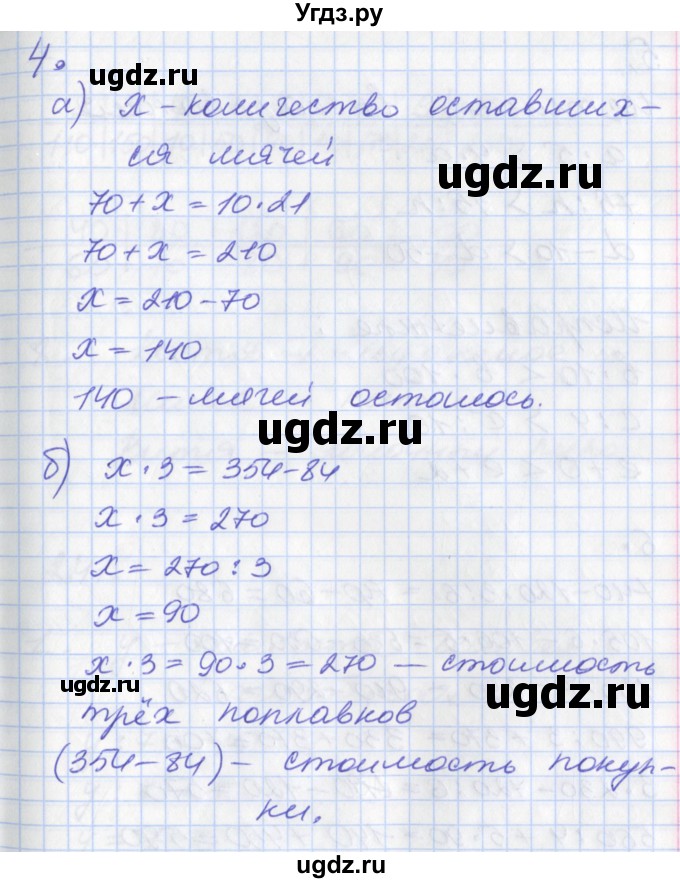 Угдз.ру
4.
ugdz.ru
а) х - количество оставших-
ся мячей
ugdz.ru
70 + х = 10 · 21
70 + х = 210
х = 210 - 70
х = 140
140 - мячей осталось.
ugdz.ru
б) х · 3 = 354 - 84
х · 3 = 270
х = 270 : 3
х = 90
х · 3 = 90 · 3 = 270 — стоимость
ugdz.ru
ugdz.ru
трёх поплавков
(354 - 84) - стоимость покуп-
ки.
ugdz.ru